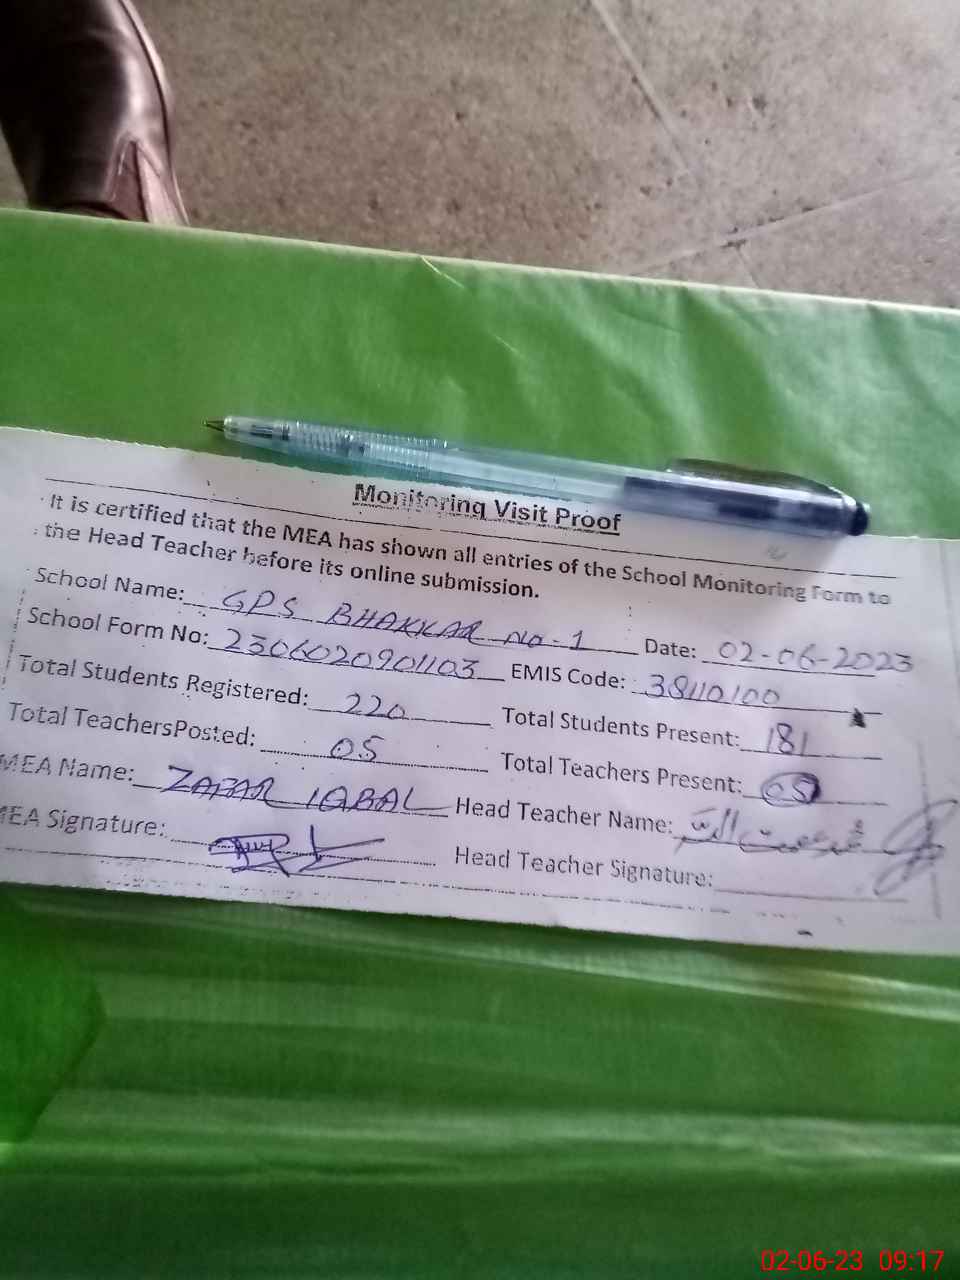 Monitoring Visit Proof
It is certified that the MEA has shown all entries of the School Monitoring Form to
the Head Teacher before its online submission.
School Name: GPS BHAKKAR NO-1 Date: 02-06-2023
School Form No: 2306020901103 EMIS Code: 38110100
Total Students Registered: 220 Total Students Present: 181
Total TeachersPosted: 05 Total Teachers Present: 05
MEA Name: ZAFAR IQBAL Head Teacher Name:
MEA Signature: Head Teacher Signature:
02-06-23 09:17